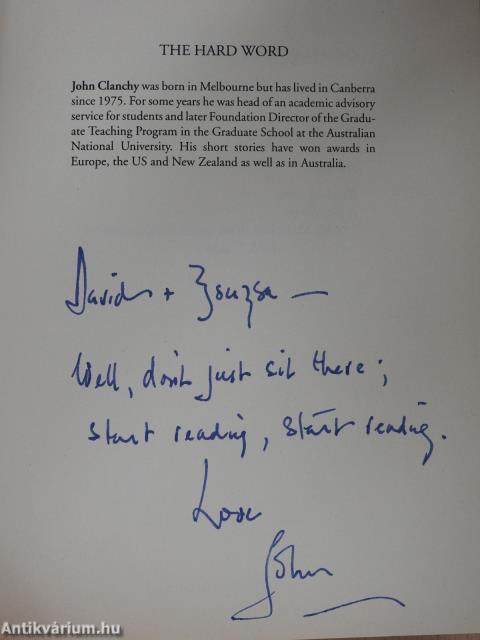 THE HARD WORD
John Clanchy was born in Melbourne but has lived in Canberra
since 1975. For some years he was head of an academic advisory
service for students and later Foundation Director of the Gradu-
ate Teaching Program in the Graduate School at the Australian
National University. His short stories have won awards in
Europe, the US and New Zealand as well as in Australia.
David + Zsuzsa —
Well, don't just sit there;
start reading, start reading.
Love
John
Antikvárium.hu